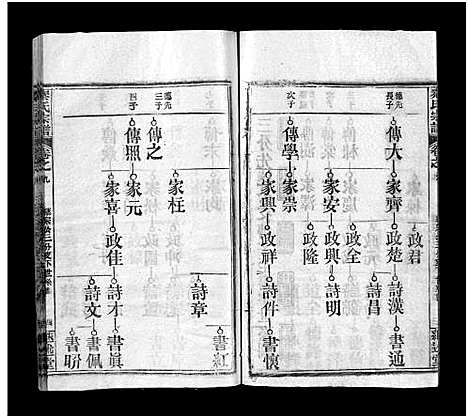 氏宗譜
德先
長子
傳大
家齊
政君
政楚
詩漢
書通
詩昌
政全
家安
政興
詩明
政隆
次子
傳學
家崇
家興
政祥
詩件
書懷
德先
三子
傳之
家枉
詩章
書紅
四子
傳照
家元
家喜
政佳
詩才
書眞
詩文
書佩
書昕
氏宗譜